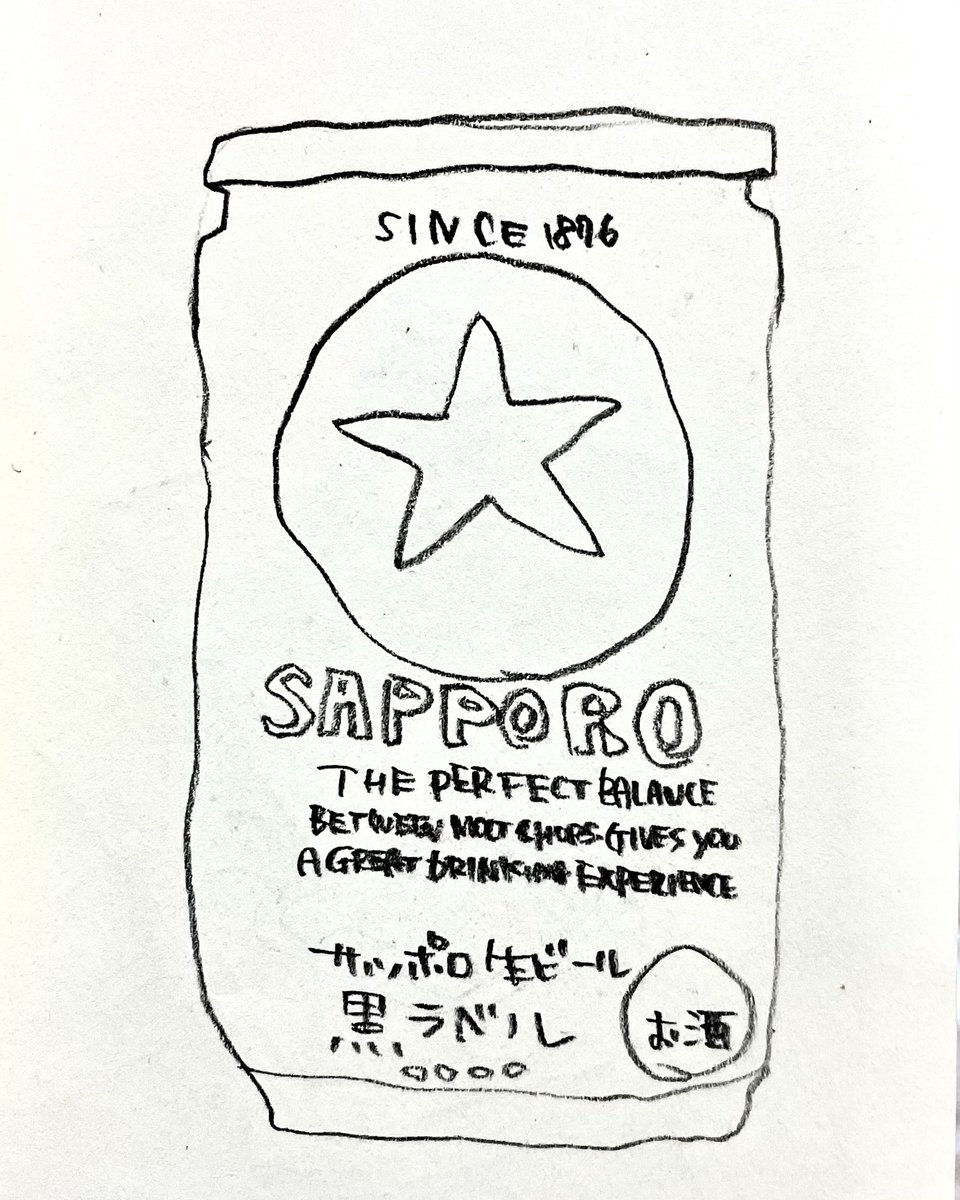 SINCE 1876
SAPPORO
THE PERFECT BALANCE
BETWEEN GIVES YOU
A GREAT DRINKING EXPERIENCE
サッポロ生ビール
黒ラベル
お酒